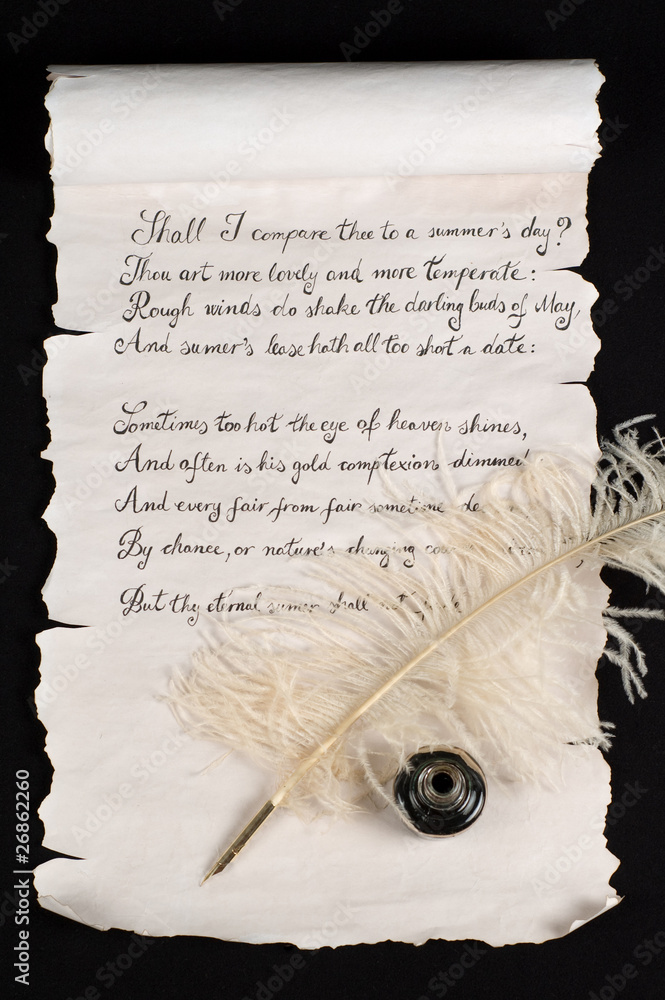 Shall I compare thee to a summer's day?
Thou art more lovely and more temperate:
Rough winds do shake the darling buds of May,
And sumer's lease hath all too shot a date:
Sometimes too hot the eye of heaven shines,
And often is his gold complexion dimmed
And every fair from fair sometime de
By chance, or nature's changing cou
But thy eternal sumer shall not fade
Adobe Stock | #26862260